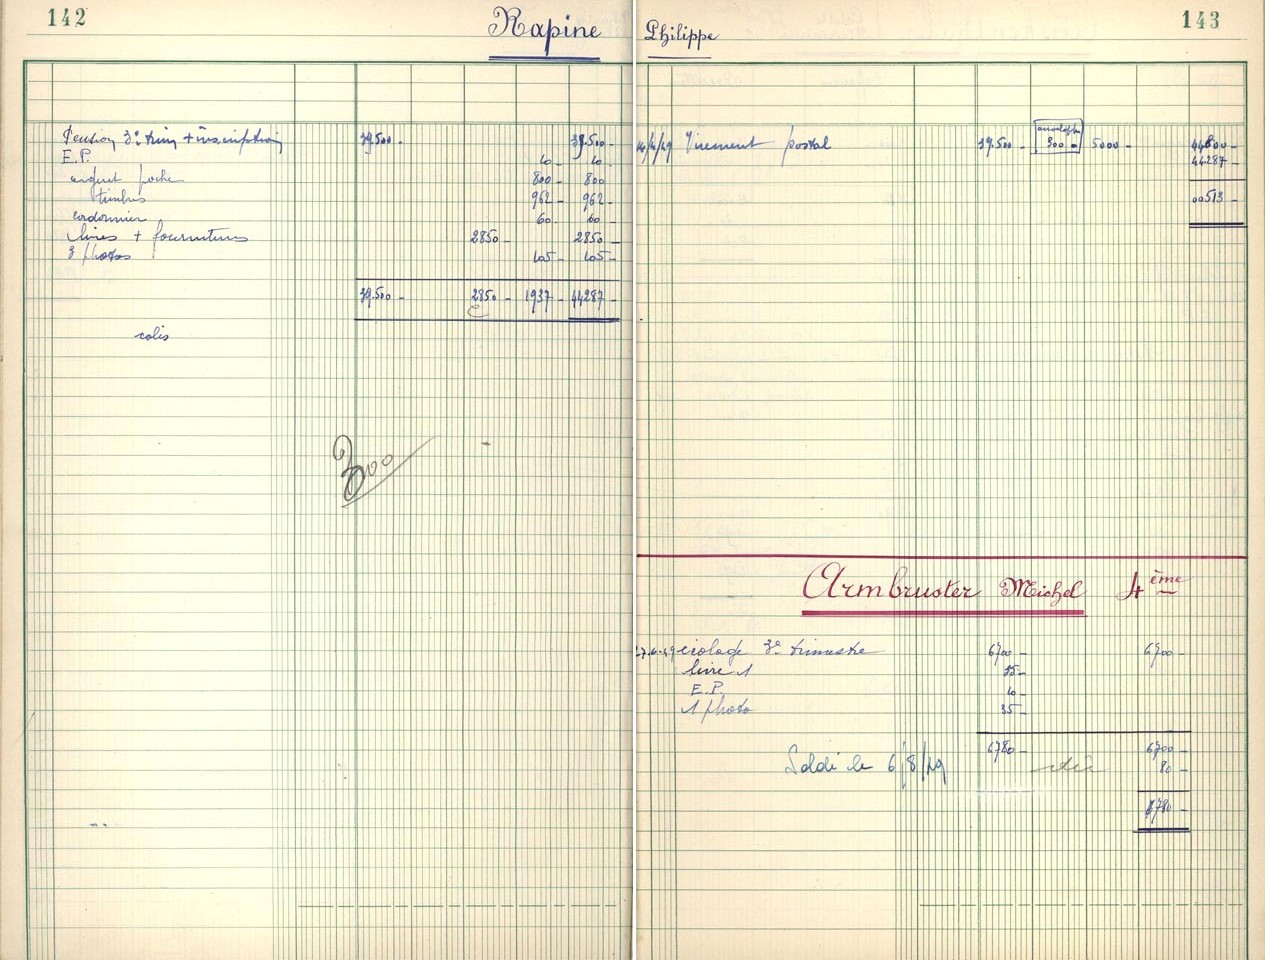 142
Rapine
Pension 3e trim + inscription 39.500 - 39.500 -
E.P. 10 - 10 -
argent poche 800 - 800
timbres 962 - 962 -
cordonnier 60 - 60 -
livres + fournitures 2850 - 2850 -
3 photos 105 - 105 -
39.500 - 2850 - 1937 - 44287 -
colis
300
Philippe
143
14/4/49 Virement postal 39.500 - 300 - 5000 - 44800 -
44287 -
00513 -
Armbruster Michel 4ème
27.6.49 écolage 3e trimestre 6700 - 6700 -
livre 1 35 -
E.P. 10 -
1 photo 35 -
6780 - 6700 -
Soldé le 6/8/49 80 -
6780 -